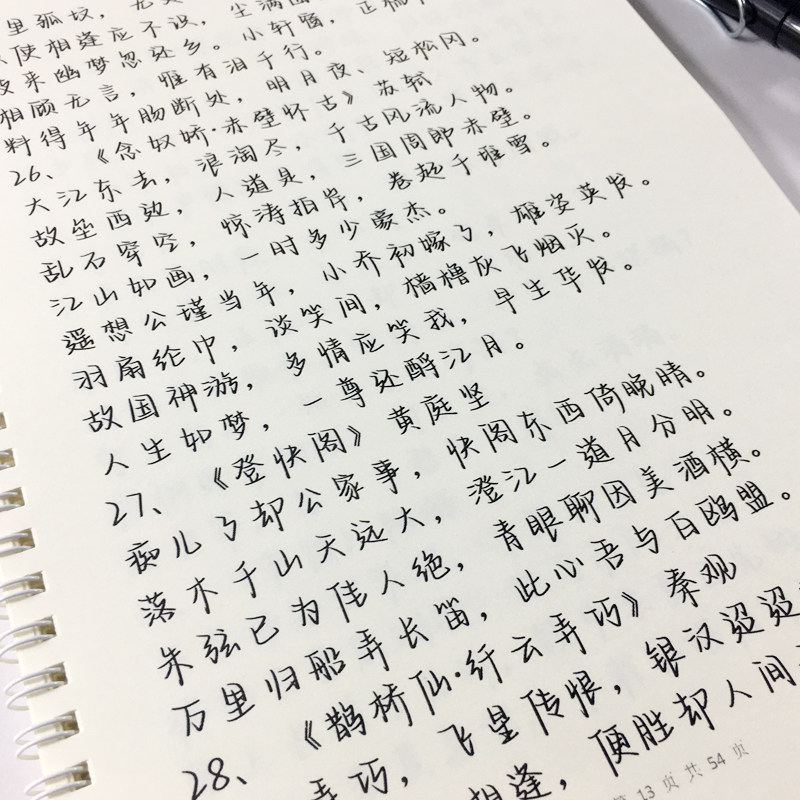 里孤坟，无
使相逢应不识，尘满面
夜来幽梦忽还乡。小轩窗，正梳
相顾无言，惟有泪千行。
料得年年肠断处，明月夜、短松冈。
26、《念奴娇·赤壁怀古》苏轼
大江东去，浪淘尽，千古风流人物。
故垒西边，人道是，三国周郎赤壁。
乱石穿空，惊涛拍岸，卷起千堆雪。
江山如画，一时多少豪杰。
遥想公瑾当年，小乔初嫁了，雄姿英发。
羽扇纶巾，谈笑间，樯橹灰飞烟灭。
故国神游，多情应笑我，早生华发。
人生如梦，一尊还酹江月。
27、《登快阁》黄庭坚
痴儿了却公家事，快阁东西倚晚晴。
落木千山天远大，澄江一道月分明。
朱弦已为佳人绝，青眼聊因美酒横。
万里归船弄长笛，此心吾与白鸥盟。
28、《鹊桥仙·纤云弄巧》秦观
弄巧，飞星传恨，银汉迢迢
相逢，便胜却人间
第 13 页 共 54 页